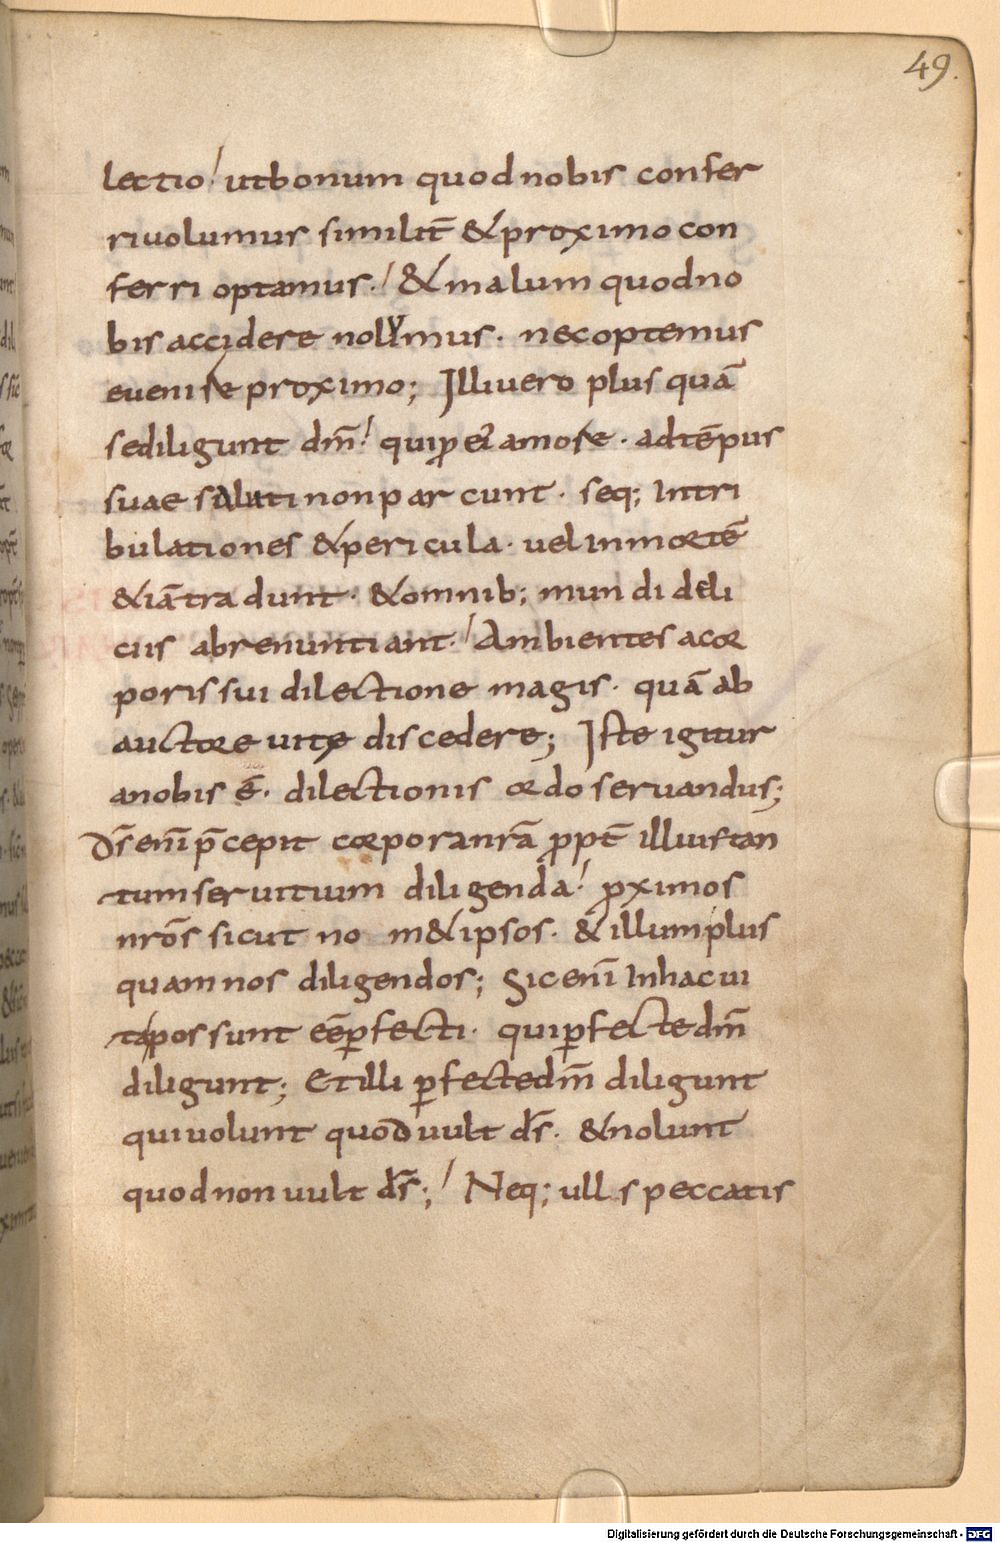 49.
lectio! utbonum quod nobis confer
rivolumus similit̄ &proximo con
ferri optamus. &malum quodno
bis accidere nolumus. nec optemus
evenire proximo; Illi vero plus quā
se diligunt dm̄! qui p ei' amore. ad tēpus
suae saluti non parcunt. seq; in tri
bulationes &pericula. vel in mortē
&iā tradunt. &omnib; mundi deli
ciis abrenuntiant. Ambientes a cor
poris sui dilectione magis. quā ab
auctore vitę discedere; Iste igitur
a nobis ē. dilectionis ordo servandus;
Ds̄ enī p̄cepit corpora nrā ppt̄ illius tan
tum servitium diligenda! pximos
nrōs sicut no m&ipsos. &illum plus
quam nos diligendos; Sic enī in hac vi
ta possunt eē pfecti. qui pfecte dm̄
diligunt; Et illi pfecte dm̄ diligunt
qui volunt quod vult ds̄. &nolunt
quod non vult ds̄; Neq; ull s peccatis
Digitalisierung gefördert durch die Deutsche Forschungsgemeinschaft - DFG